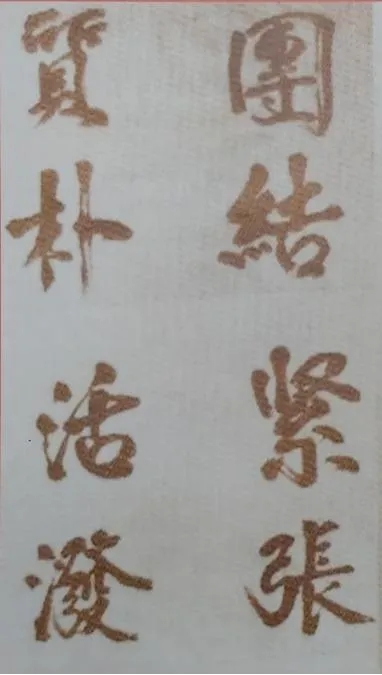 團結緊張
質朴活潑